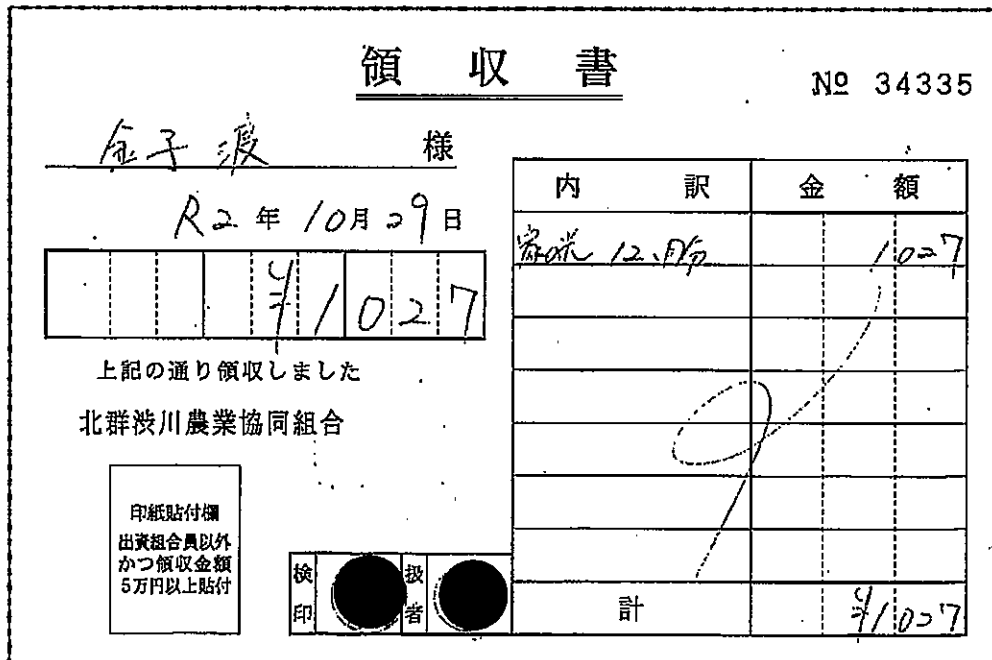 領収書
№ 34335
金子 渡 様
R2年10月29日
¥1027
上記の通り領収しました
北群渋川農業協同組合
印紙貼付欄
出資組合員以外
かつ領収金額
5万円以上貼付
検印 扱者
内訳 金額
12月分 1027
計 ¥1027